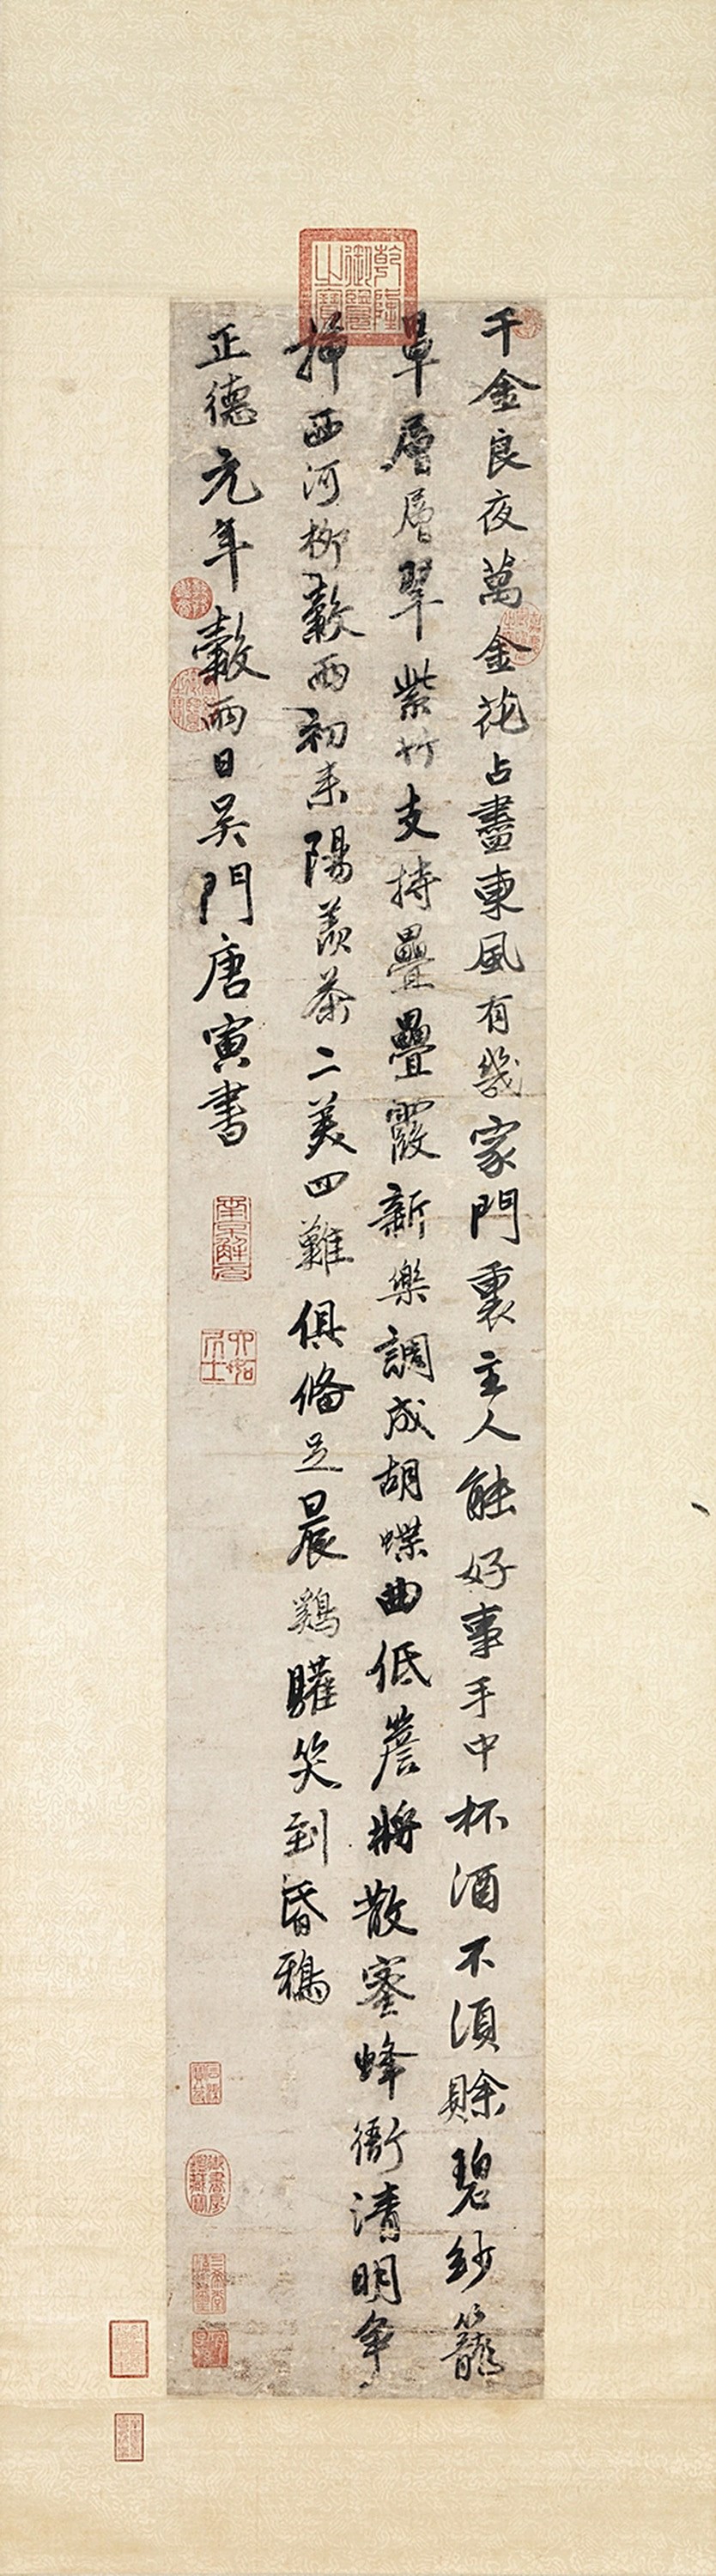 千金良夜萬金花占盡東風有幾家門裏主人能好事手中杯酒不須賒碧紗籠
罩層層翠紫竹支持疊疊霞新樂調成胡蝶曲低簷將散蜜蜂衙清明爭
插西河柳穀雨初來陽羨茶二美四難俱備足晨鷄驩笑到昏鴉
正德元年穀雨日吳門唐寅書
乾隆御覽之寶
南京解元
六如居士